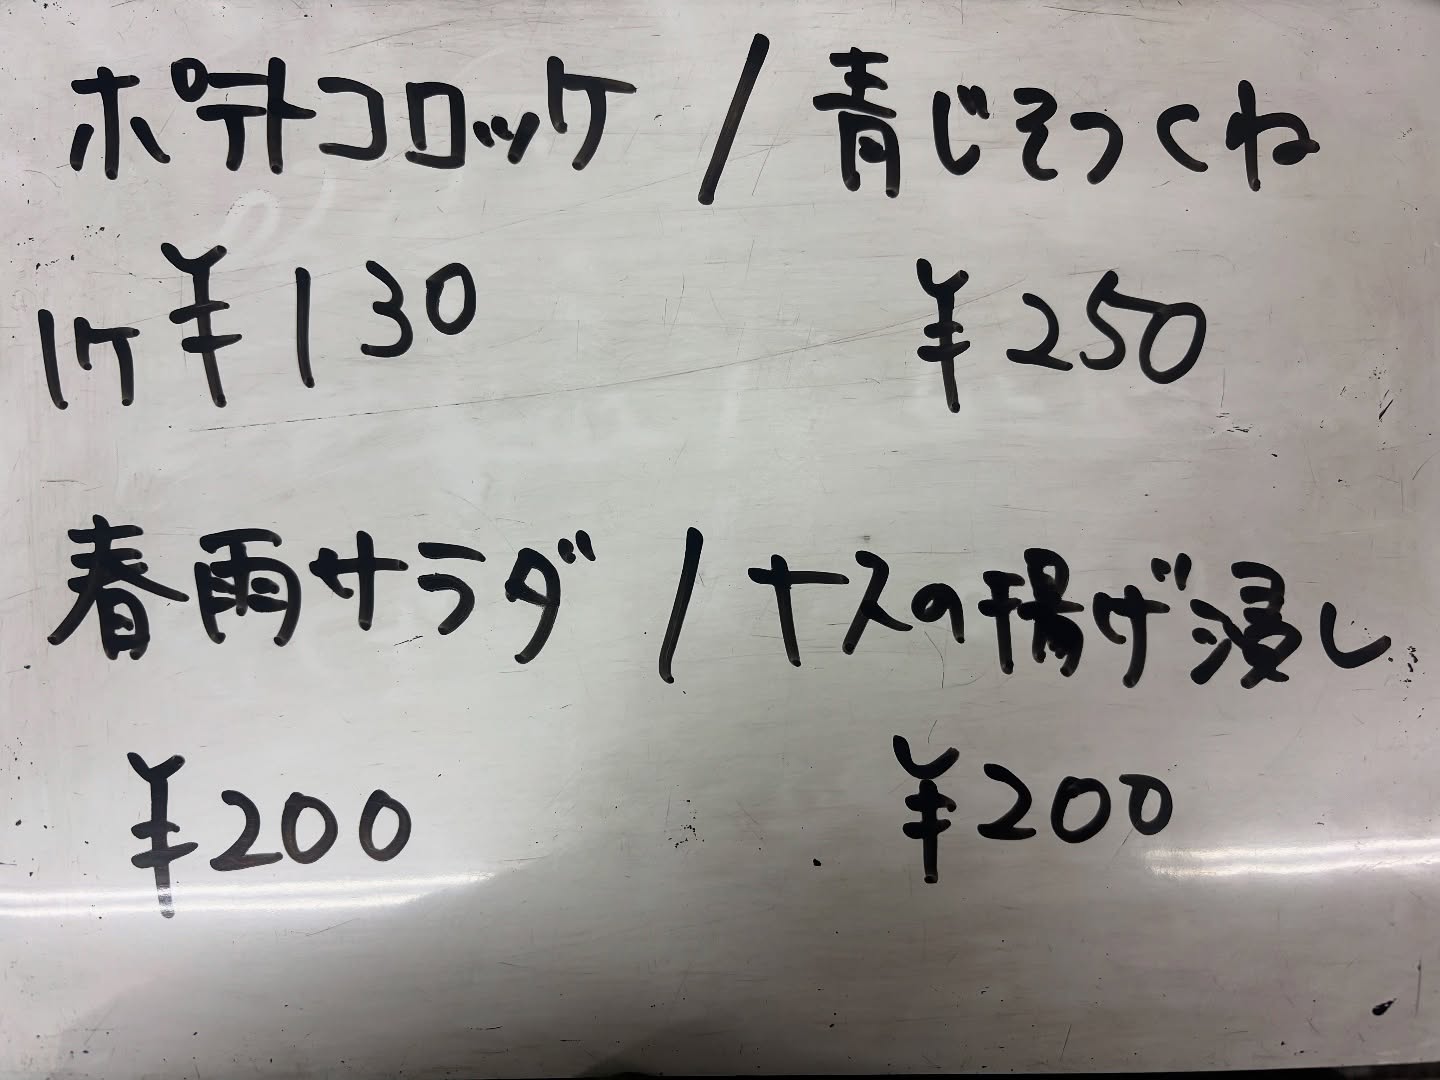 ポテトコロッケ / 青じそつくね
1ケ ¥130 ¥250
春雨サラダ / ナスの揚げ浸し
¥200 ¥200